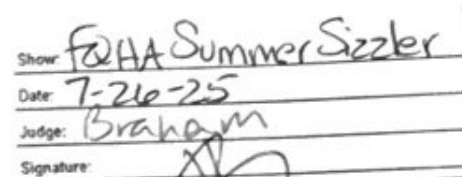 Show: FQHA Summer Sizzler
Date: 7-26-25
Judge: Braham
Signature: